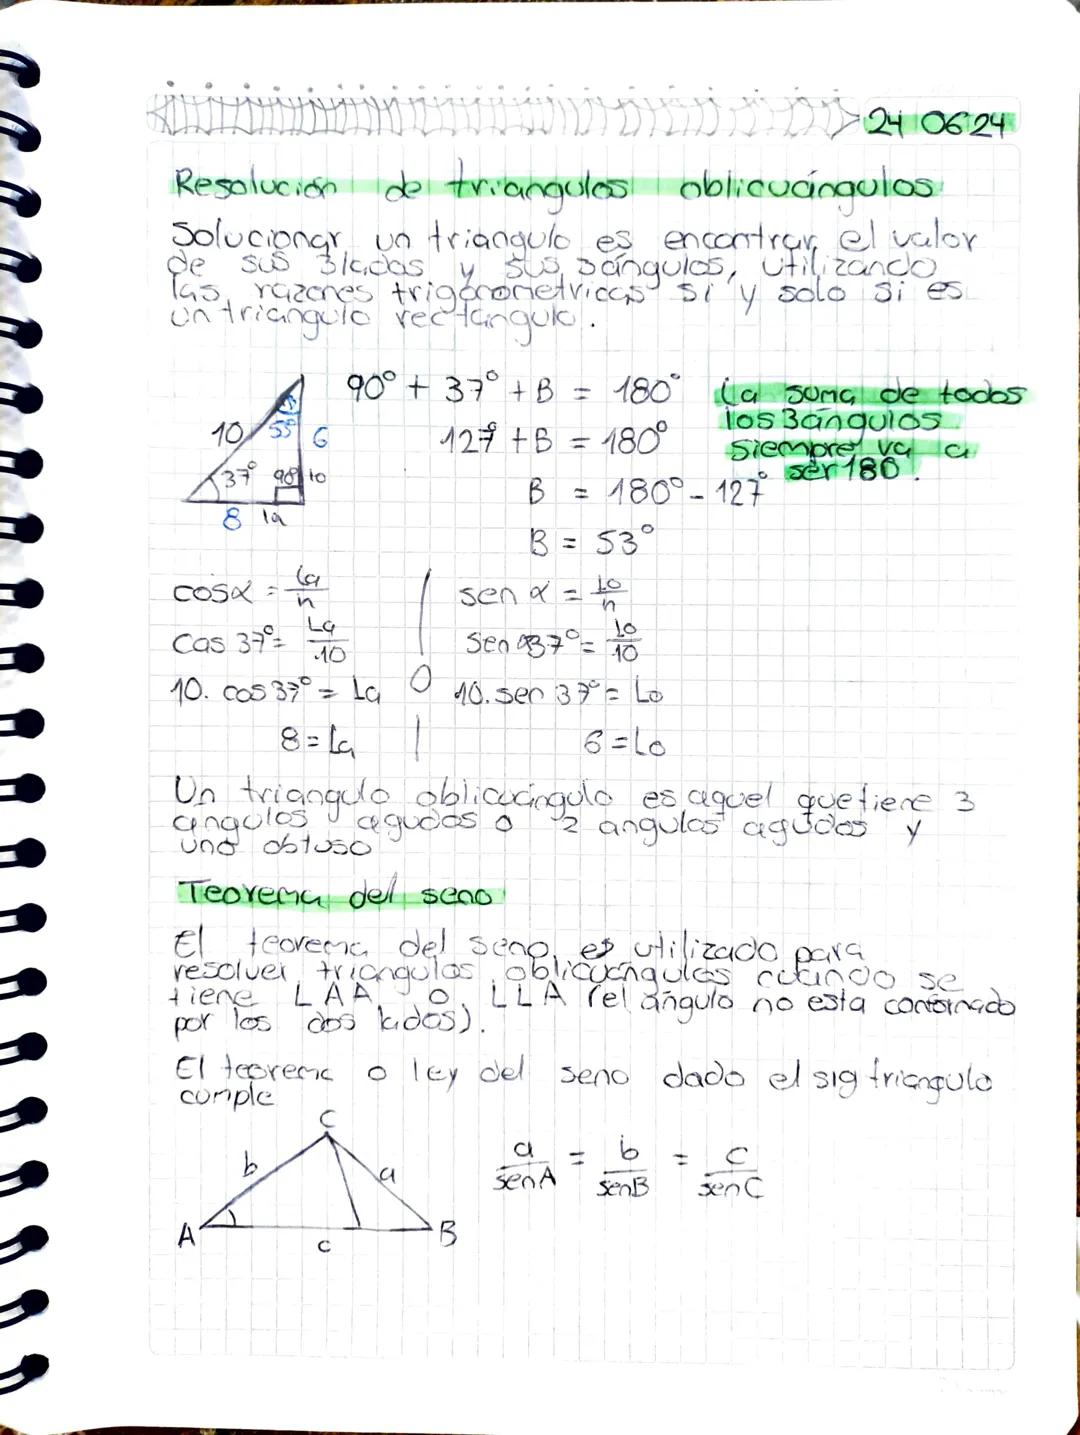 24 06 24
Resolución de triangulos oblicuángulos
Solucionar un triangulo es encontrar el valor
de sus 3 lados y sus 3 ángulos, utilizando
las razones trigonometricas si y solo si es
un triangulo rectangulo.
90° + 37° + B = 180°
127° + B = 180°
B = 180° - 127°
B = 53°
La suma de todos
los 3 angulos
siempre va a
ser 180.
10
6
37° 90° lo
8 la
cosα = La/h
cos 37° = La/10
10. cos 37° = La
8 = La
O
sen α = Lo/h
sen 37° = Lo/10
10. sen 37° = Lo
6 = Lo
Un triangulo oblicuángulo es aquel que tiene 3
angulos agudos o 2 angulos agudos y
uno obtuso
Teorema del seno
El teorema del seno es utilizado para
resolver triangulos oblicuángulos cuando se
tiene LAA o LLA (el ángulo no esta
por los dos lados).
El teorema o ley del seno dado el sig triangulo
cumple
C
b a
A c B
a/senA = b/senB = c/senC